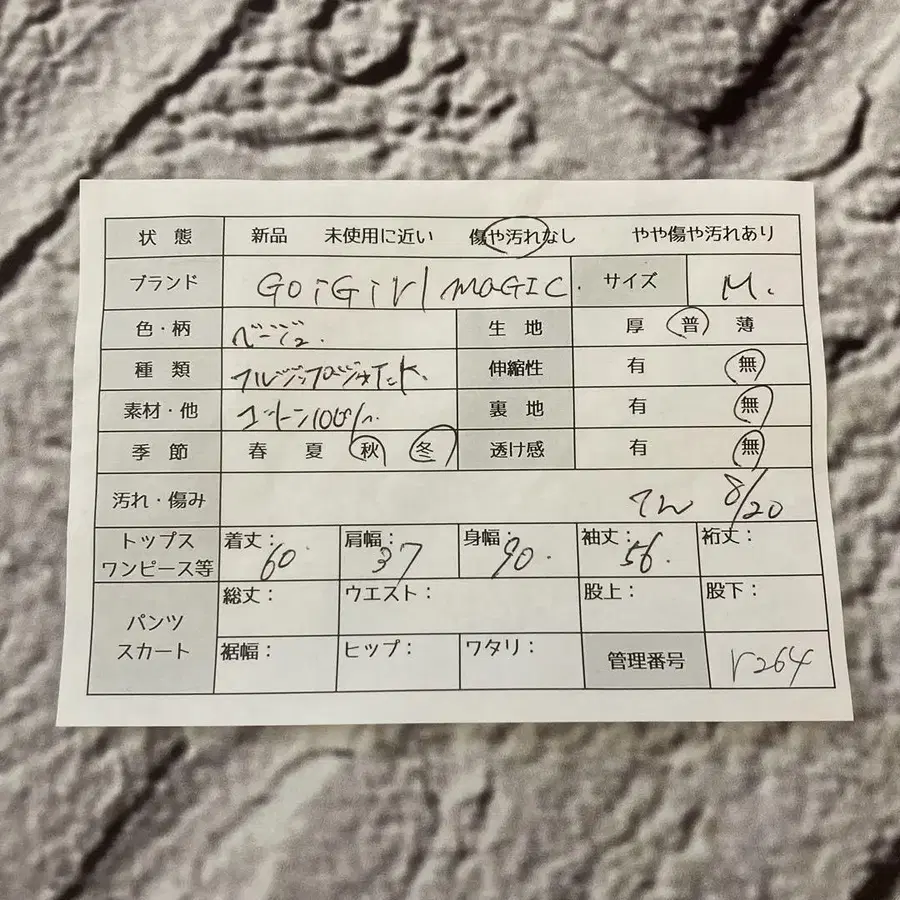 状態 新品 未使用に近い 傷や汚れなし やや傷や汚れあり
ブランド GOiGirl MAGIC. サイズ M.
色・柄 ベージュ. 生地 厚 普 薄
種類 フルジップジャケット. 伸縮性 有 無
素材・他 コットン100%. 裏地 有 無
季節 春 夏 秋 冬 透け感 有 無
汚れ・傷み てん 8/20
トップス ワンピース等 着丈: 60. 肩幅: 37 身幅: 90. 袖丈: 56. 裄丈:
パンツ スカート 総丈: ウエスト: 股上: 股下:
裾幅: ヒップ: ワタリ: 管理番号 r264